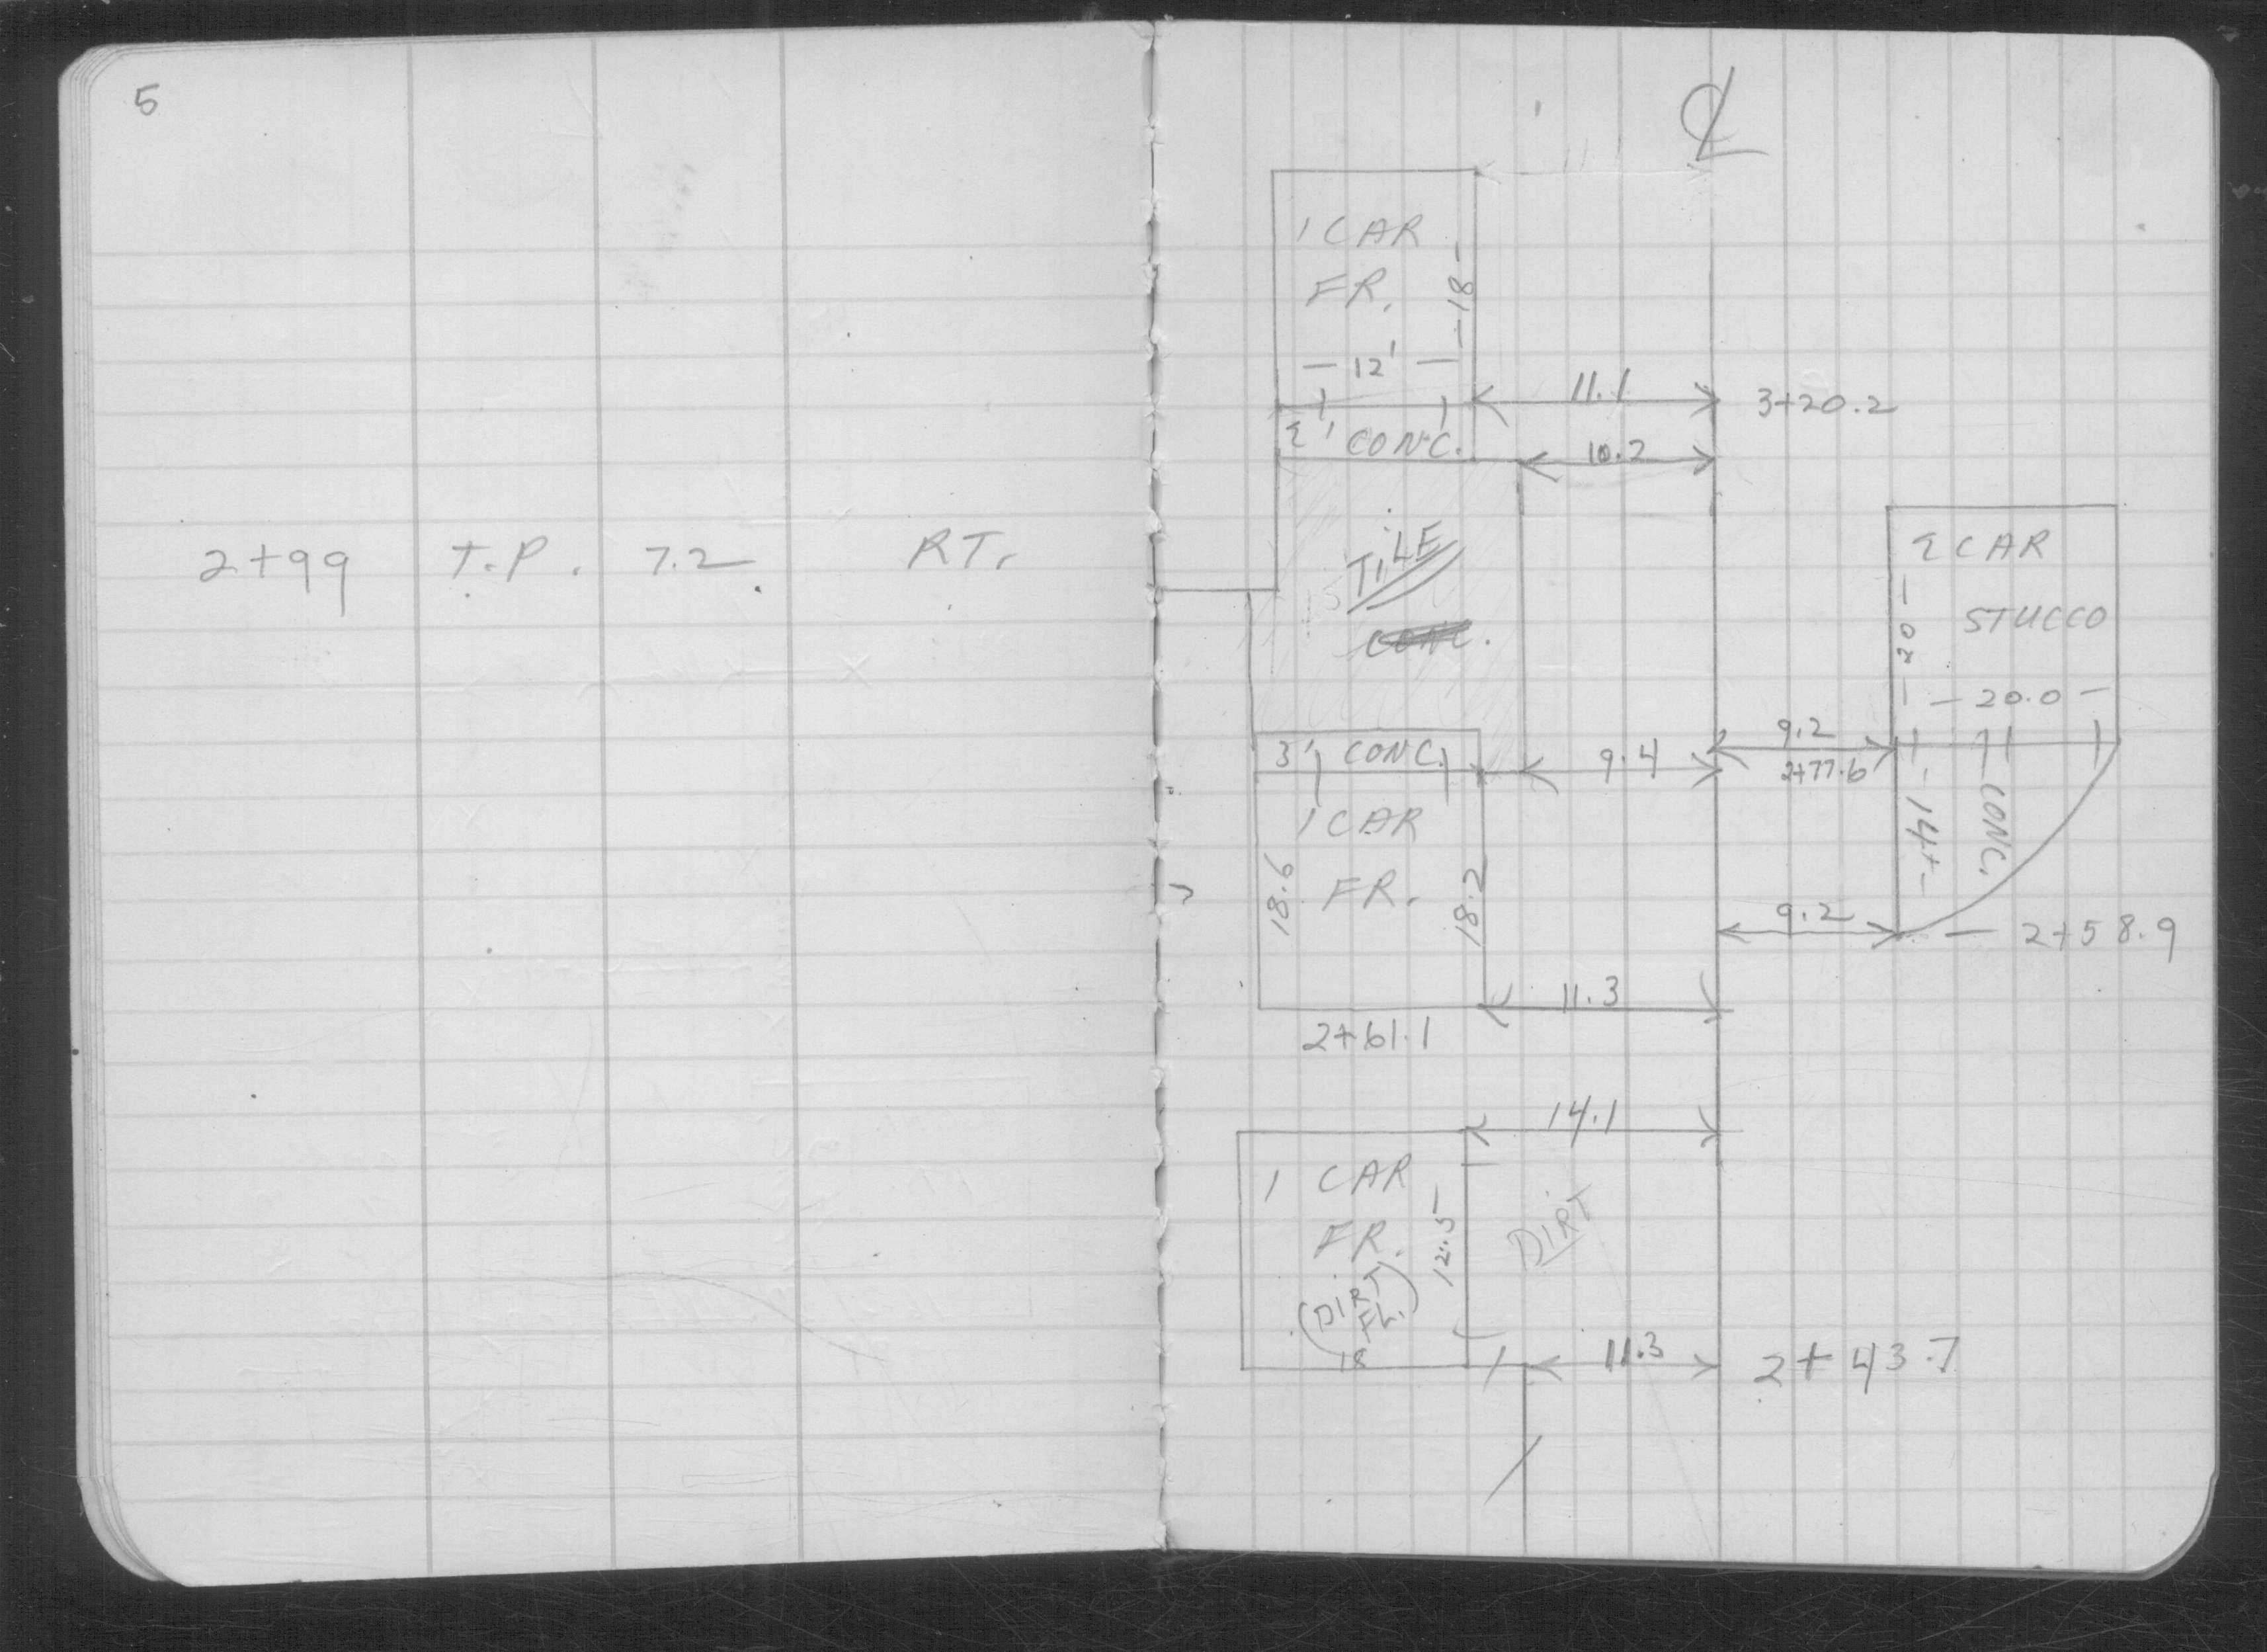 5
2+99 T.P. 7.2 RT.
℄
11.1
1 CAR
FR.
18
12'
11.1 3+20.2
2' CONC.
10.2
TILE
CONC.
2 CAR
STUCCO
20
20.0
3' CONC.
9.4
9.2
2+77.6
14+
CONC.
1 CAR
FR.
18.6
18.2
9.2
2+58.9
11.3
2+61.1
14.1
1 CAR
FR.
(DIRT
FL.)
12.5
DIRT
18
11.3
2+43.7